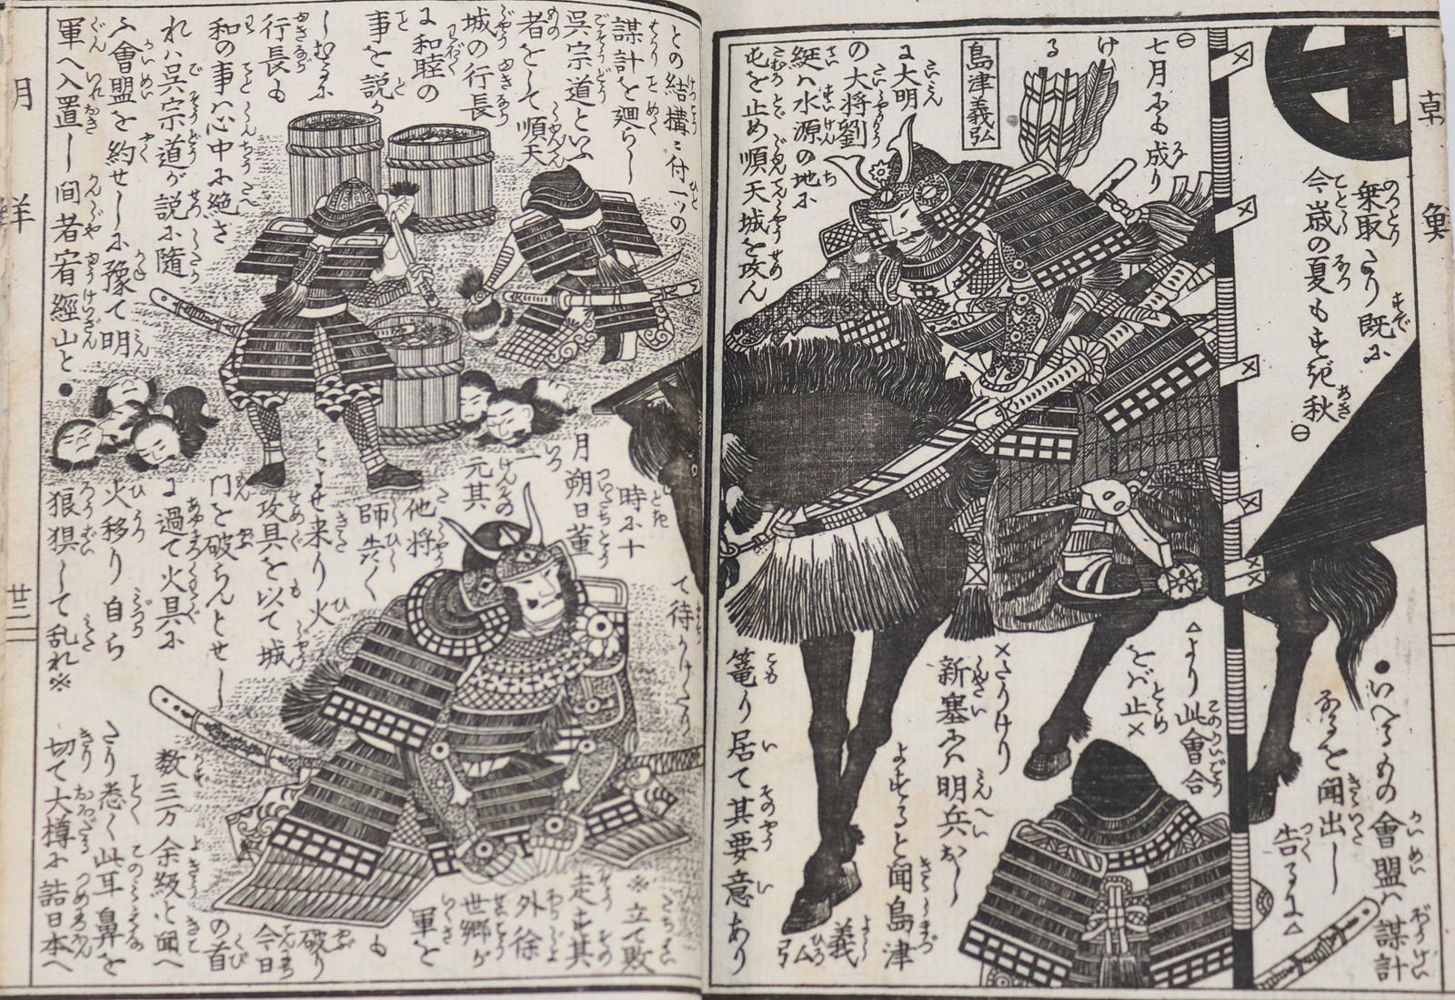 乗取たり既に
今歳の夏もすぎ秋⊖
⊖七月にも成り
ける
島津義弘
に大明
の大将劉
綎ハ水源の地に
屯を止め順天城を攻ん
との結構に付一ツの
謀計を廻らし
呉宗道といふ
者をして順天
城の行長
に和睦の
事を説か
しむるに
行長も
和の事ハ心中に絶さ
れハ呉宗道が説に随
ふ會盟を約せしに豫て明
軍へ入置し間者宥經山と●
●いへるもの會盟ハ謀計
なるを聞出し
告るに△
△より此會合
をバ止×
×たりけり
新塞にハ明兵おし
よすると聞島津
義弘
篭り居て其要意あり
て待うけたり
時に十
月朔日董
一元其
他将
師共く
とよせ来り火
攻具を以て城
門を破らんとせし
に過て火具に
火移り自ら
狼狽して乱れ※
※立て敗
走す其
外徐
世郷が
軍を
も
破り
今日
の首
数三万余級と聞へ
たり悉く此耳鼻を
切て大樽に詰日本へ
月
廿二